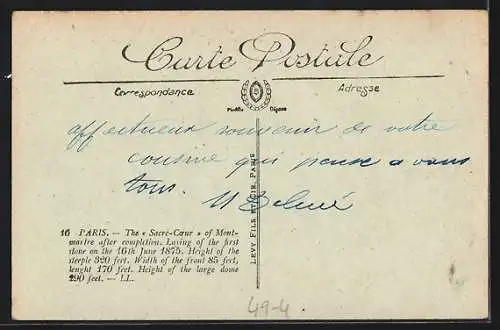 Carte Postale
Correspondance
Adresse
affectueux souvenir de votre
cousine qui pense a vous
tous.
LEVY FILS ET CIE, PARIS
16 PARIS. — The « Sacré-Cœur » of Mont-
martre after completion. Laying of the first
stone on the 16th June 1875. Height of the
steeple 320 feet. Width of the front 85 feet,
lenght 170 feet. Height of the large dome
290 feet. — LL.
49-4